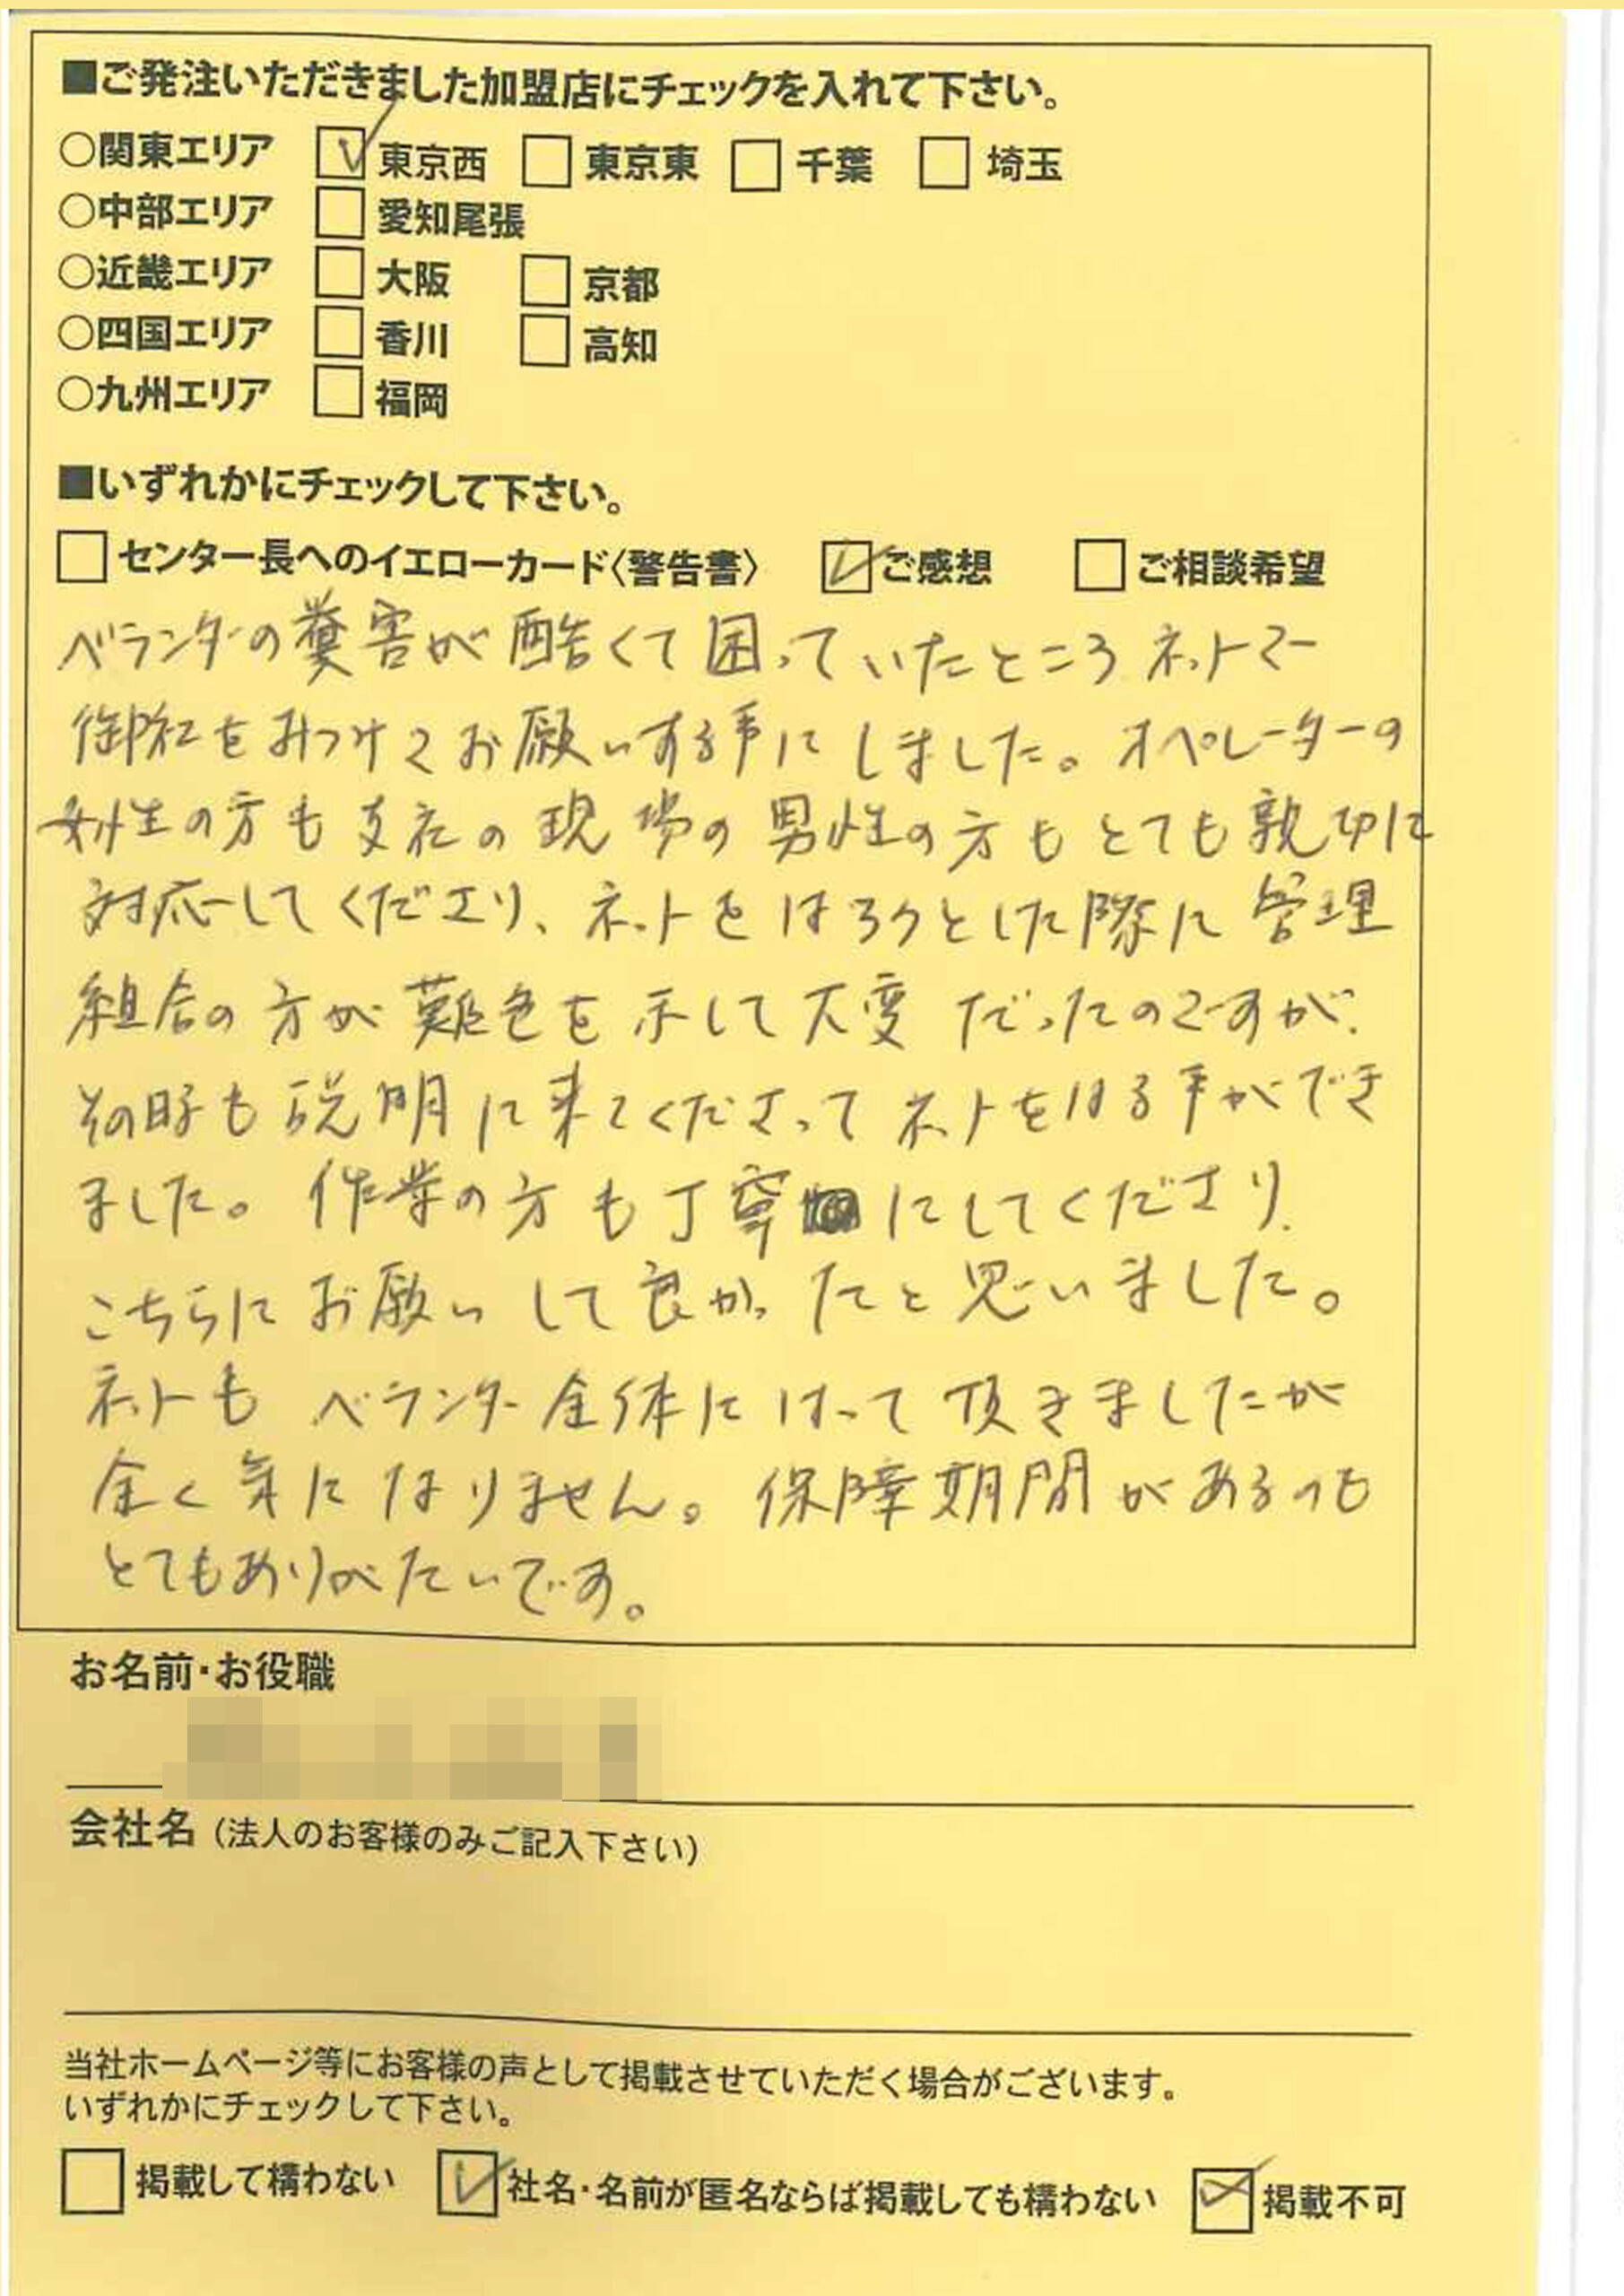 ■ご発注いただきました加盟店にチェックを入れて下さい。
○関東エリア ☑東京西 □東京東 □千葉 □埼玉
○中部エリア □愛知尾張
○近畿エリア □大阪 □京都
○四国エリア □香川 □高知
○九州エリア □福岡
■いずれかにチェックして下さい。
□センター長へのイエローカード〈警告書〉 ☑ご感想 □ご相談希望
ベランダの糞害が酷くて困っていたところネットで
御社をみつけてお願いする事にしました。オペレーターの
女性の方も支社の現場の男性の方もとても親切に
対応してくださり、ネットをはろうとした際に管理
組合の方が難色を示して大変だったのですが、
その時も説明に来てくださってネットをはる事ができ
ました。作業の方も丁寧にしてくださり、
こちらにお願いして良かったと思いました。
ネットもベランダ全体にはって頂きましたが
全く気になりません。保障期間があるのも
とてもありがたいです。
お名前・お役職
会社名（法人のお客様のみご記入下さい）
当社ホームページ等にお客様の声として掲載させていただく場合がございます。
いずれかにチェックして下さい。
□掲載して構わない ☑社名・名前が匿名ならば掲載しても構わない ☑掲載不可